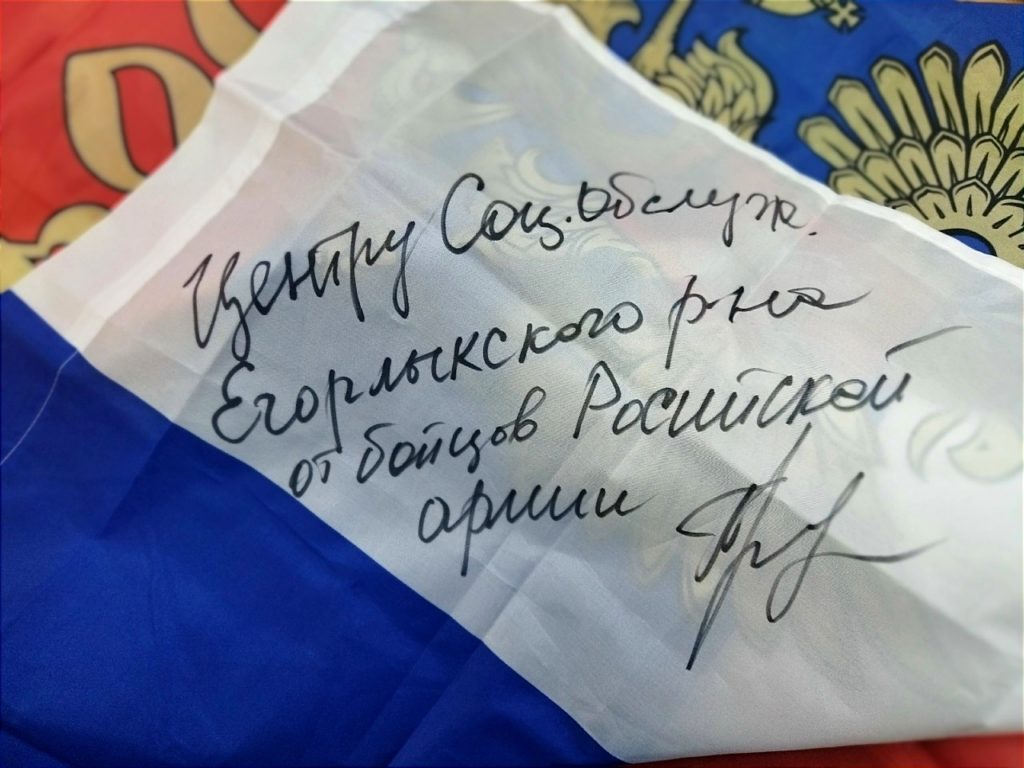 Центру Соц. Обслуж.
Егорлыкского р-на
от бойцов Росийской
армии